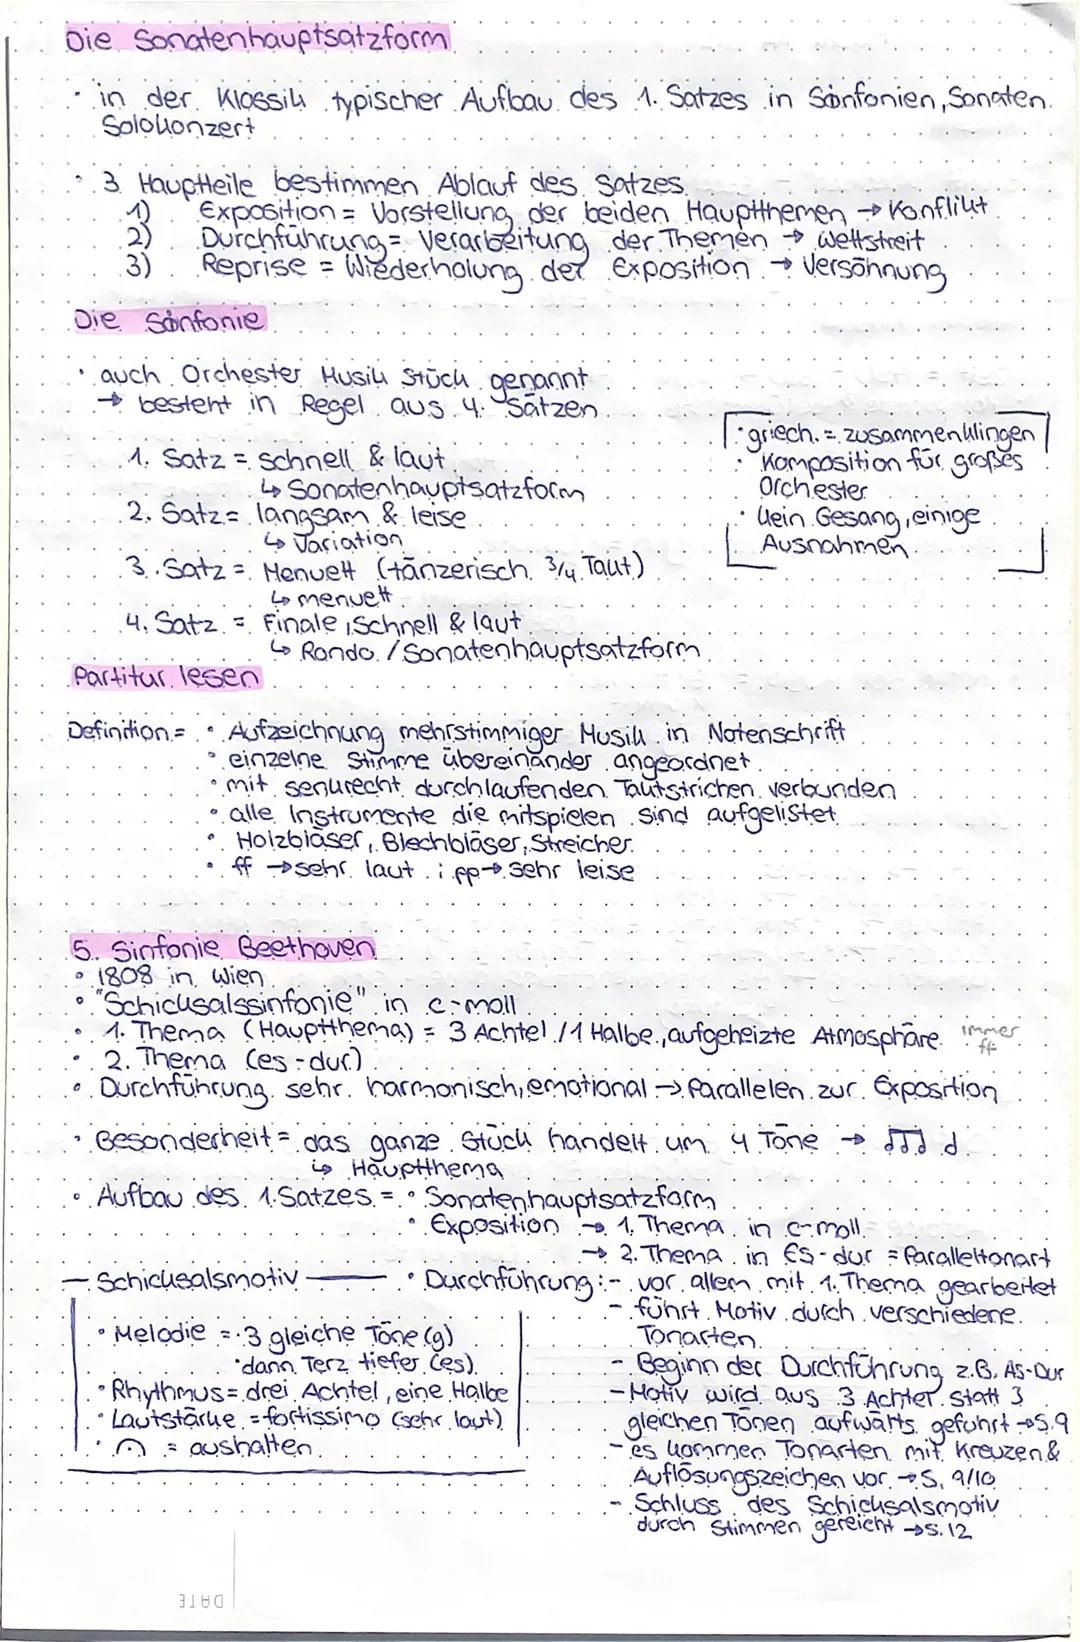 Die Sonatenhauptsatzform
· in der Klassik typischer Aufbau des 1. Satzes in Sinfonien, Sonaten
Solokonzert
· 3 Hauptteile bestimmen Ablauf des Satzes
1) Exposition = Vorstellung der beiden Hauptthemen → Konflikt
2) Durchführung = Verarbeitung der Themen → Wettstreit
3) Reprise = Wiederholung der Exposition → Versöhnung
Die Sinfonie
· auch Orchester Musik Stück genannt
→ besteht in Regel aus 4. Sätzen
1. Satz = schnell & laut
↳ Sonatenhauptsatzform
2. Satz = langsam & leise
↳ Variation
3. Satz = Menuett (tänzerisch 3/4 Takt)
↳ menuett
4. Satz = Finale, schnell & laut
↳ Rondo / Sonatenhauptsatzform
· griech. = zusammenklingen
· Komposition für großes
Orchester
· kein Gesang, einige
Ausnahmen
Partitur lesen
Definition = · Aufzeichnung mehrstimmiger Musik in Notenschrift
· einzelne Stimme übereinander angeordnet
· mit senkrecht durchlaufenden Taktstrichen verbunden
· alle Instrumente die mitspielen sind aufgelistet
· Holzbläser, Blechbläser, Streicher
· ff → sehr laut ; pp → sehr leise
5. Sinfonie Beethoven
· 1808 in Wien
· "Schicksalssinfonie" in c-moll
· 1. Thema (Hauptthema) = 3 Achtel / 1 Halbe, aufgeheizte Atmosphäre immer ff
· 2. Thema (es-dur)
· Durchführung sehr harmonisch, emotional → Parallelen zur Exposition
· Besonderheit = das ganze Stück handelt um 4 Töne →
↳ Hauptthema
· Aufbau des 1. Satzes = · Sonatenhauptsatzform
· Exposition → 1. Thema in c-moll
→ 2. Thema in Es-dur = Paralleltonart
· Durchführung: - vor allem mit 1. Thema gearbeitet
- führt Motiv durch verschiedene
Tonarten
- Beginn der Durchführung z.B. As-Dur
- Motiv wird aus 3 Achter statt 3
gleichen Tönen aufwärts geführt → S. 9
- es kommen Tonarten mit Kreuzen &
Auflösungszeichen vor → S. 9/10
- Schluss des Schicksalsmotiv
durch Stimmen gereicht → S. 12
Schicksalsmotiv
· Melodie = · 3 gleiche Töne (g)
· dann Terz tiefer (es)
· Rhythmus = drei Achtel, eine Halbe
· Lautstärke = fortissimo (sehr laut)
· 𝄐 = aushalten
DATE